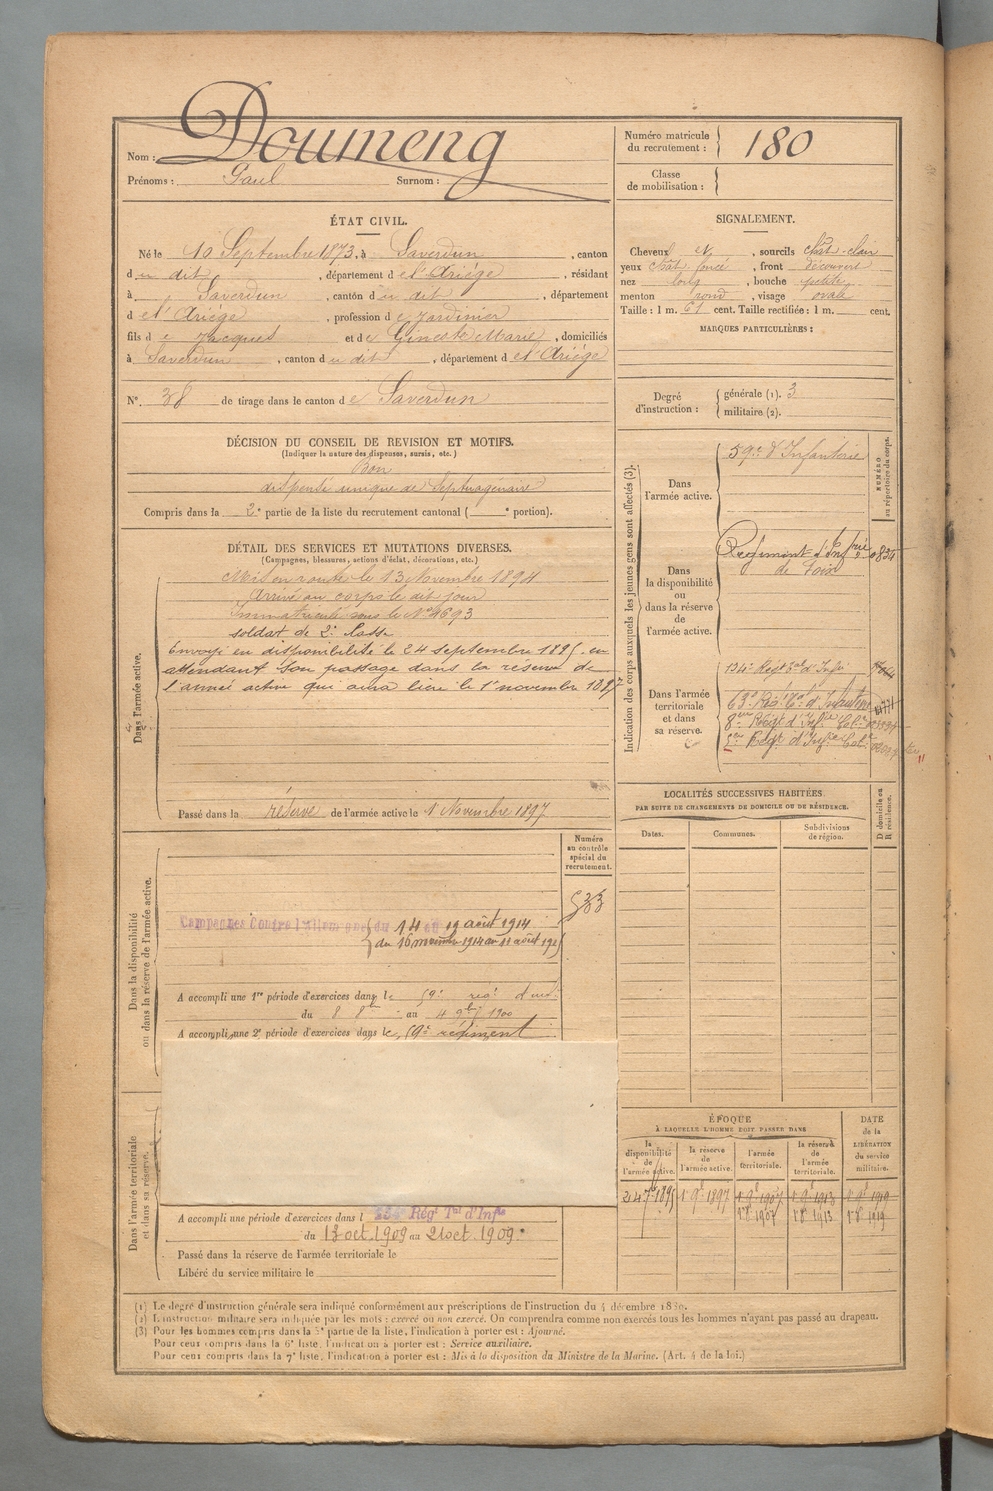 Nom : Doumeng
Prénoms : Paul Surnom :
Numéro matricule du recrutement : 180
Classe de mobilisation :
ÉTAT CIVIL.
Né le 10 Septembre 1873, à Saverdun, canton
du dit, département de l'Ariège, résidant
à Saverdun, canton du dit, département
de l'Ariège, profession de Jardinier
fils de Jacques et de Marie, domiciliés
à Saverdun, canton du dit, département de l'Ariège
N°. 38 de tirage dans le canton de Saverdun
SIGNALEMENT.
Cheveux et, sourcils chât-clair
yeux chât foncé, front découvert
nez long, bouche petite
menton rond, visage ovale
Taille : 1 m. 61 cent. Taille rectifiée : 1 m. cent.
MARQUES PARTICULIÈRES :
Degré d'instruction : générale (1). 3
militaire (2).
DÉCISION DU CONSEIL DE REVISION ET MOTIFS.
(Indiquer la nature des dispenses, sursis, etc.)
Bon
dispensé unique de Septuagénaire
Compris dans la 2e partie de la liste du recrutement cantonal ( e portion).
DÉTAIL DES SERVICES ET MUTATIONS DIVERSES.
(Campagnes, blessures, actions d'éclat, décorations, etc.)
Dans l'armée active.
Mis en route le 13 Novembre 1894
Arrivé au corps le dit jour
Immatriculé sous le N° 4693
soldat de 2e classe
Envoyé en disponibilité le 24 septembre 1895 en
attendant son passage dans la réserve de
l'armée active qui aura lieu le 1er novembre 1897
Passé dans la réserve de l'armée active le 1 Novembre 1897
Indication des corps auxquels les jeunes gens sont affectés (3).
NUMÉRO au répertoire du corps.
Dans l'armée active.
59e d'Infanterie
Dans la disponibilité ou dans la réserve de l'armée active.
Régiment d'Infrie
de Foix
Dans l'armée territoriale et dans sa réserve.
134e Régt Tal d'Infie
63e Rég. Tal d'Infanterie
8em Régt d'Infie Cole
5em Régt d'Infie Cole
LOCALITÉS SUCCESSIVES HABITÉES
PAR SUITE DE CHANGEMENTS DE DOMICILE OU DE RÉSIDENCE.
Dates. Communes. Subdivisions de région. D domicile ou R résidence.
Numéro au contrôle spécial du recrutement.
533
Dans la disponibilité ou dans la réserve de l'armée active.
Campagnes Contre l'Allemagne du 14 au 19 août 1914
du 16 novembre 1914 au 11 août 191
A accompli une 1re période d'exercices dans le 59e
du 8 8bre au 4 9bre 1900
A accompli une 2e période d'exercices dans le 59e régiment
Dans l'armée territoriale et dans sa réserve.
A accompli une période d'exercices dans l Régt Tal d'Infie
du 13 oct. 1909 au 21 oct. 1909.
Passé dans la réserve de l'armée territoriale le
Libéré du service militaire le
ÉPOQUE
À LAQUELLE L'HOMME DOIT PASSER DANS
la disponibilité de l'armée active. la réserve de l'armée active. l'armée territoriale. la réserve de l'armée territoriale.
DATE de la LIBÉRATION du service militaire.
24 7bre 1895 1er 9bre 1897 1er 9bre 1907 1er 9bre 1913 1er 9bre 1919
1er 8bre 1907 1er 8bre 1913 1er 8bre 1919
(1) Le degré d'instruction générale sera indiqué conformément aux prescriptions de l'instruction du 4 décembre 1889.
(2) L'instruction militaire sera indiquée par les mots : exercé ou non exercé. On comprendra comme non exercés tous les hommes n'ayant pas passé au drapeau.
(3) Pour les hommes compris dans la 5e partie de la liste, l'indication à porter est : Ajourné.
Pour ceux compris dans la 6e liste, l'indication à porter est : Service auxiliaire.
Pour ceux compris dans la 7e liste, l'indication à porter est : Mis à la disposition du Ministre de la Marine. (Art. 4 de la loi.)